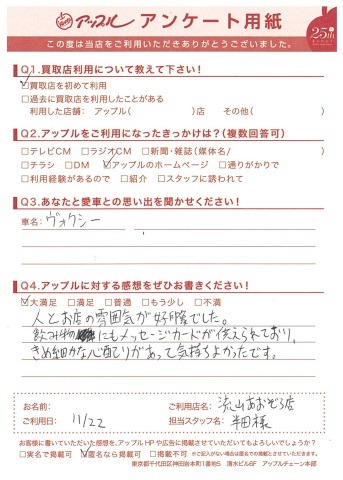 アップル アンケート用紙
25th
この度は当店をご利用いただきありがとうございました。
Q1.買取店利用について教えて下さい!
☑買取店を初めて利用
□過去に買取店を利用したことがある
利用した店舗: アップル( )店 その他( )
Q2.アップルをご利用になったきっかけは?(複数回答可)
□テレビCM □ラジオCM □新聞・雑誌(媒体名/ )
□チラシ □DM ☑アップルのホームページ □通りがかりで
□利用経験があるので □紹介 □スタッフに誘われて
Q3.あなたと愛車との思い出を聞かせください!
車名: ヴォクシー
Q4.アップルに対する感想をぜひお書きください!
☑大満足 □満足 □普通 □もう少し □不満
人とお店の雰囲気が好印象でした。
飲み物にもメッセージカードが添えられており、
きめ細かな心配りがあって気持ちよかったです。
お名前: ご利用店名: 流山おおぞら店
ご利用日: 11/22 担当スタッフ名: 半田様
お客様に書いていただいた感想を、アップルHPや広告に掲載させていただいてもよろしいでしょうか?
□実名で掲載可 ☑匿名なら掲載可 □掲載不可 ※ご記入がない場合は匿名での掲載とさせていただきます。
東京都千代田区神田岩本町1番地5 清水ビル6F アップルチェーン本部